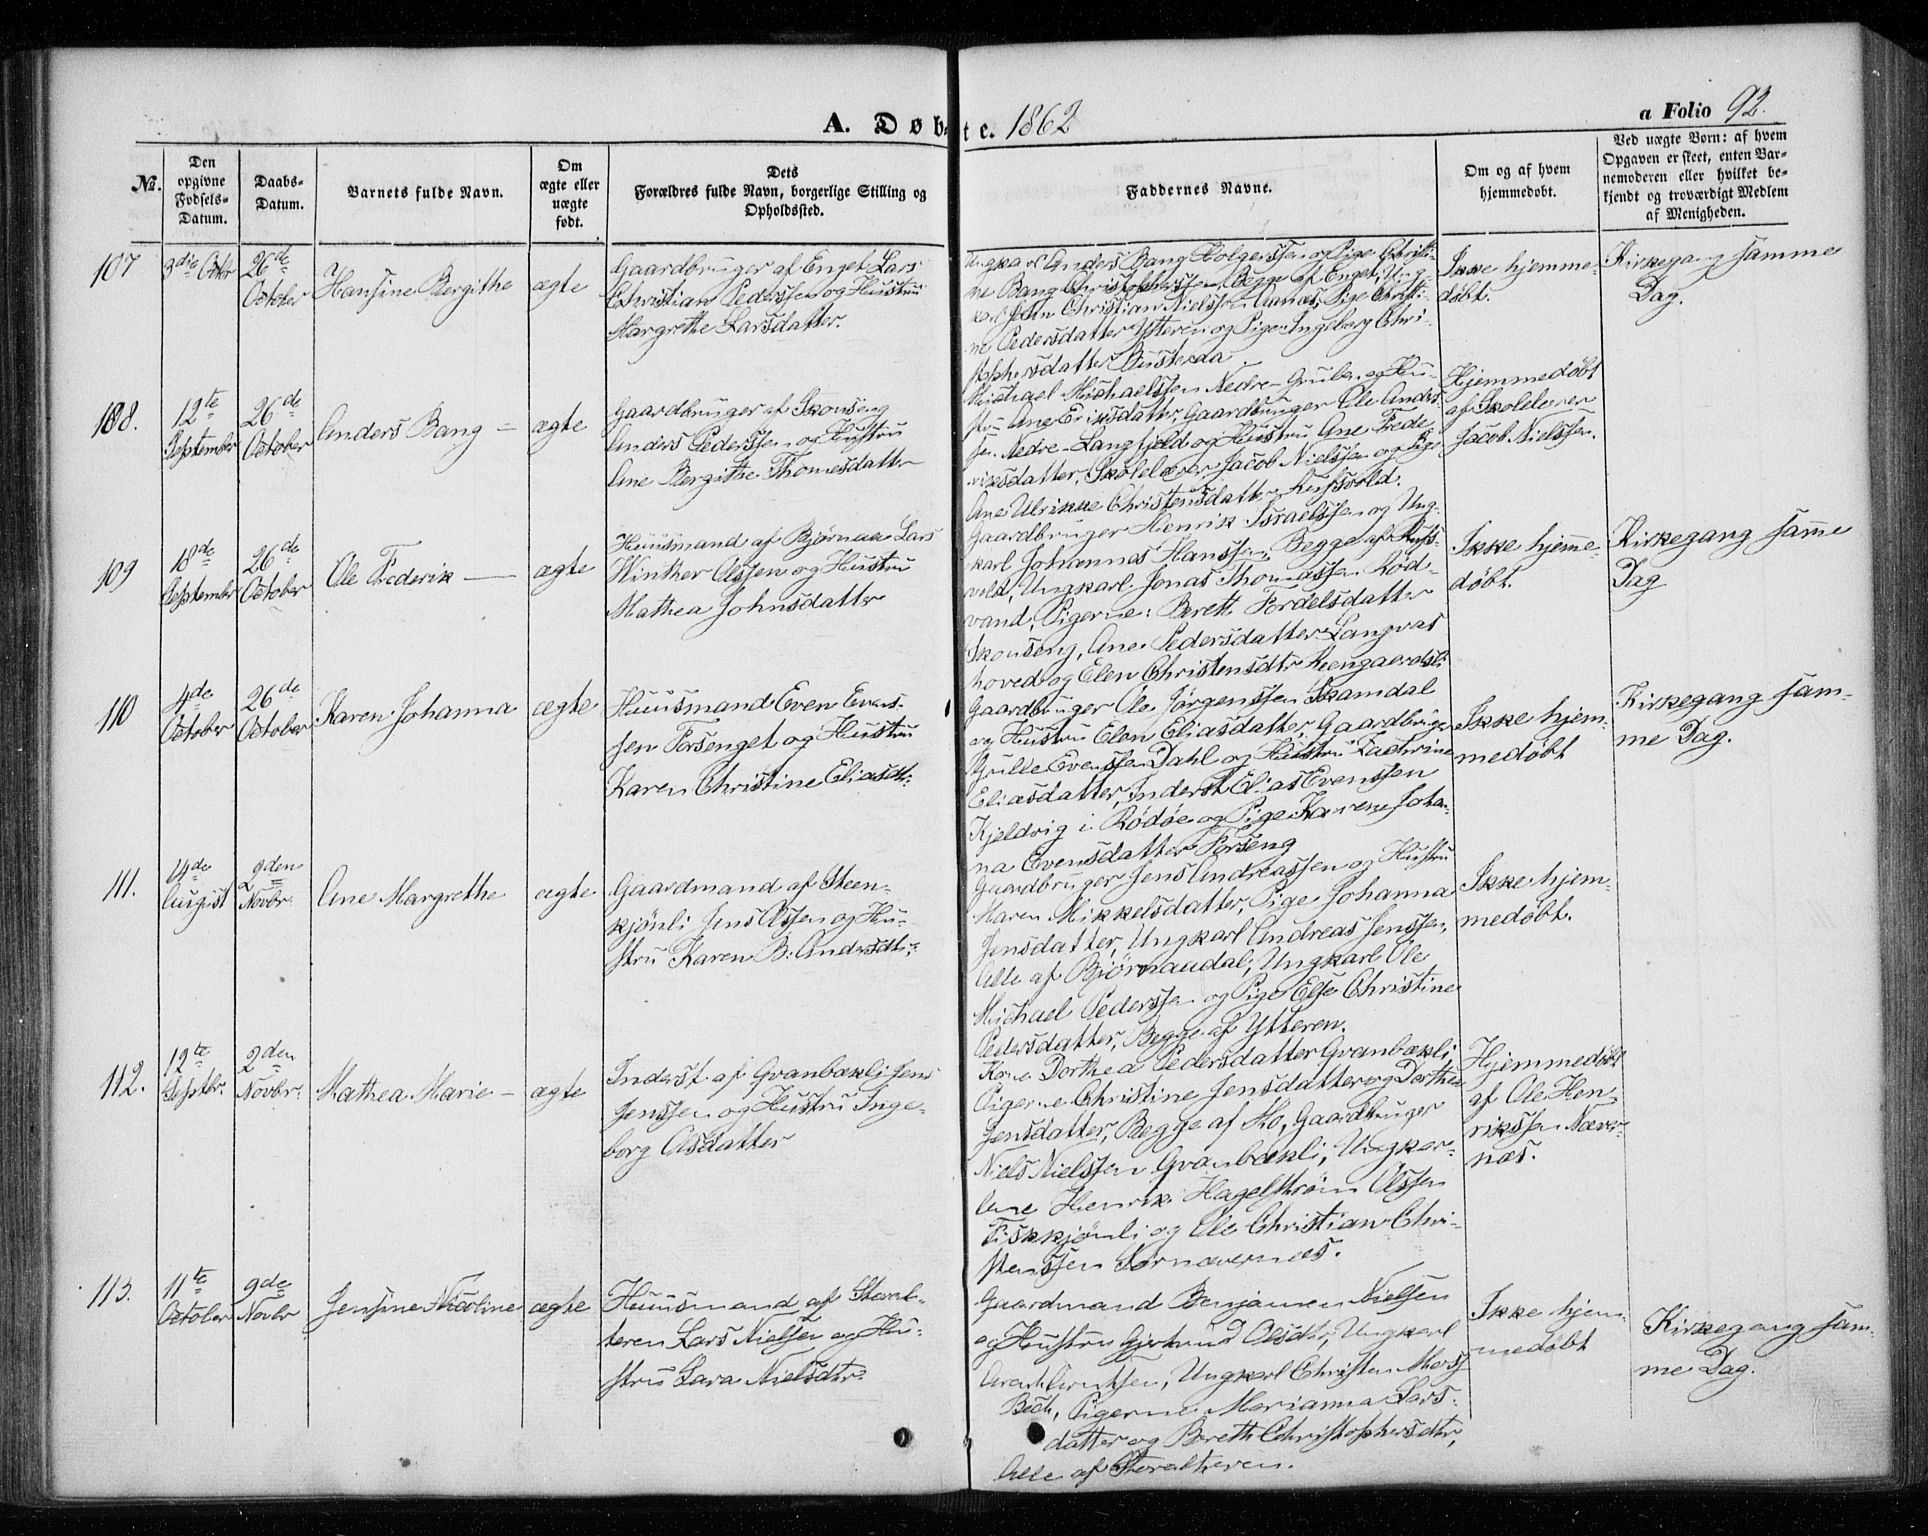 A. Døbte. 1862
a Folio 92.
№.
Den opgivne Fødsels-Datum.
Daabs-Datum.
Barnets fulde Navn.
Om ægte eller uægte født.
Dets Forældres fulde Navn, borgerlige Stilling og Opholdssted.
Faddernes Navne.
Om og af hvem hjemmedøbt.
Ved uægte Børn: af hvem Opgaven er skeet, enten Barnemoderen eller hvilket bekjendt og troværdigt Medlem af Menigheden.
107
3die Octbr
26de October
Hansine Bergithe
ægte
Gaardbruger af Enget Lars
Christian Pederssen og Hustru
Margrethe Larsdatter.
Ungkarl Anders Bang Holgerssen og Pige Christi-
ne Bang Christophersen, Begge af Enget, Ung-
karl John Christian Nielssen Aanæs, Pige Christi-
ne Pedersdatter Ytteren og Pige Ingeborg Chri-
stophersdatter Busterda
Ikke hjemme-
døbt.
Kirkegang samme
Dag.
108.
12te September
26de October
Anders Bang –
ægte
Gaardbruger af Skonseng
Anders Pederssen og Hustru
Ane Bergithe Thomesdatter
Michael Michaelssen Nedre-Gruben og Hu-
stru Ane Ericsdatter, Gaardbruger Ole Anders-
sen Nedre-Langfjeld og Hustru Ane Frede-
ricsdatter, Skolelærer Jacob Nielssen og Pige
Ane Ulrikke Christensdatter Rufsvold.
Hjemmedøbt
af Skolelærer
Jacob Nielssen.
109
18de September
26de October
Ole Frederik —
ægte
Huusmand af Bjørnaa Lars
Winther Olssen og Hustru
Mathea Johnsdatter
Gaardbruger Henrik Israelssen og Ung-
karl Johannas Hanssen, Begge af Rufs-
vold, Ungkarl Jonas Thomassen Rød-
vand, Pigerne: Berett Tordelsdatter
Skonseng, Ane Pedersdatter Langvas
hoved og Elen Christensdtr Reengaardsli
Ikke hjemme-
døbt.
Kirkegang samme
Dag
110
4de October
26de October
Karen Johanna
ægte
Huusmand Even Evens-
sen Forsenget og Hustru
Karen Christine Eliasdtr.
Gaardbruger Ole Jørgenssen Skamdal
og Hustru Elen Eliasdatter, Gaardbruger
Grulle Evenssen Dahl og Hustru Zachrine
Eliasdatter, Inderst Elias Evenssen
Kjeldvig i Rødøe og Pige Karen Joha-
na Evensdatter Forseng
Ikke hjem-
medøbt
Kirkegang sam-
me Dag.
111.
14de August
2den Novbr.
Ane Margrethe
ægte
Gaardmand af Steen-
kjønli Jens Olssen og Hu-
stru Karen B. Andersdtr.
Gaardbruger Jens Andreassen og Hustru
Maren Mikkelsdatter, Pige Johanna
Jensdatter, Ungkarl Andreas Jenssen,
Alle af Bjørnaadal, Ungkarl Ole
Michael Pederssen og Pige Else Christine
Pedersdatter, Begge af Ytteren.
Ikke hjem-
medøbt.
112.
12te Septbr.
2den Novbr.
Mathea Marie –
ægte
Inderst af Granbækli Jens
Jenssen og Hustru Inge-
borg Olsdatter
Kone Dorthea Pedersdatter Granbækli,
Pigerne Christine Jensdatter og Dorthea
Jensdatter, Begge af Mo, Gaardbruger
Niels Nielssen Granbækli, Ungkar-
lene Henrik Hagelstrøm Olssen
Fiskkjønli og Ole Christian Chri-
stenssen Sørnævernæs.
Hjemmedøbt
af Ole Hen-
rikssen Næver-
næs.
113.
11te October
9de Novbr
Jensine Nicoline
ægte
Huusmand af Storal-
teren Lars Nielsen og Hu-
stru Sara Nielsdtr.
Gaardmand Benjamin Nielsen
og Hustru Gjertrud Olsdtr, Ungkarl
Arent Arentsen, Ungkarl Christen Mars
Bech, Pigerne Marianna Lars-
datter og Bereth Christophersdtr,
Alle af Storalteren.
Ikke hjem-
medøbt
Kirkegang sam-
me Dag.